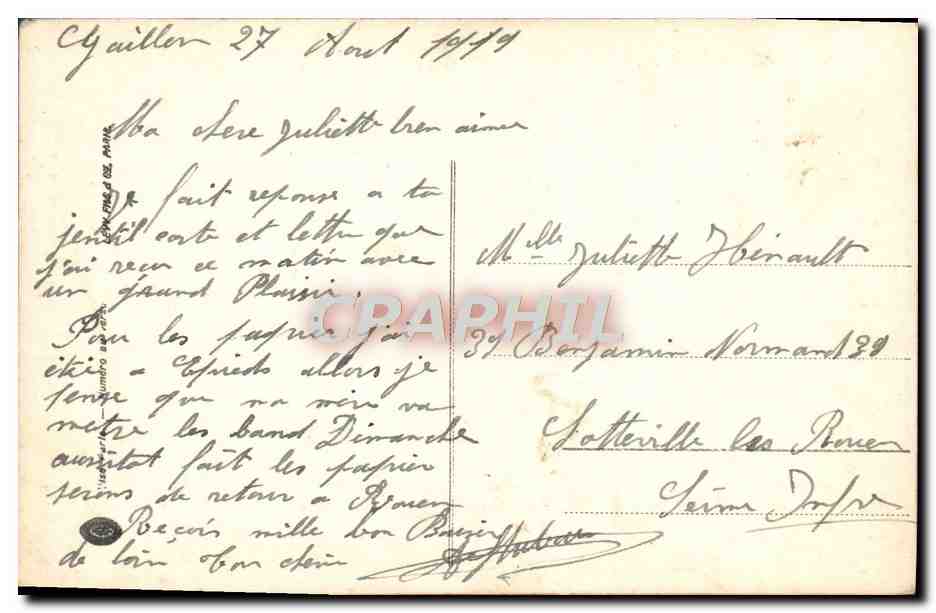 Gaillon 27 Aout 1919
Ma chere Juliette bien aimer
Je fait reponse a ta
jentil carte et lettre que
j'ai reçu ce matin avec
un grand Plaisir.
Pour les papier j'ai
étée a Epieds allors je
pense que ma mère va
metre les band Dimanche
aussitot fait les papier
serons de retour a Rouen
Reçois mille bon Baiser
de loin Ton chérie
Mlle Juliette Hénault
39 Benjamin Normand 39
Sotteville les Rouen
Seine Infre
LEVY FILS & Cie, PARIS
CPARPHIL